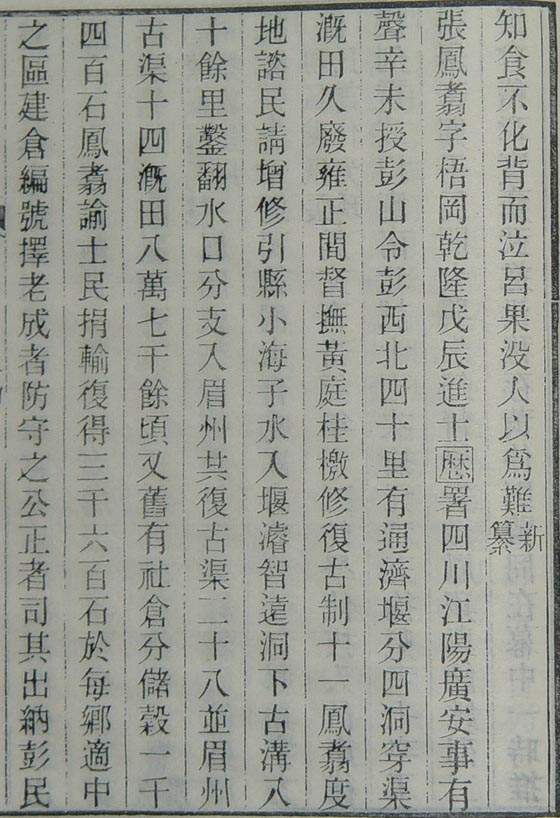 知食不化背而泣呂果没人以爲難新纂
張鳳翥字梧岡乾隆戊辰進士歷署四川江陽廣安事有
聲辛未授彭山令彭西北四十里有通濟堰分四洞穿渠
溉田久廢雍正間督撫黃庭桂檄修復古制十一鳳翥度
地諮民請增修引縣小海子水入堰濬智遠洞下古溝八
十餘里鑿翻水口分支入眉州共復古渠二十八並眉州
古渠十四溉田八萬七千餘頃又舊有社倉分儲穀一千
四百石鳳翥諭士民捐輸復得三千六百石於每鄉適中
之區建倉編號擇老成者防守之公正者司其出納彭民